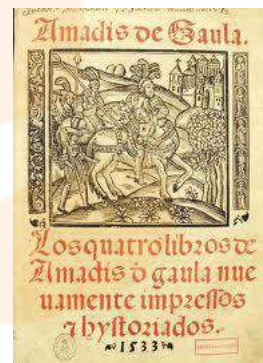 Amadis de Gaula.
Los quatro libros de
Amadis d gaula nue
uamente impressos
⁊ hystoriados.
1533